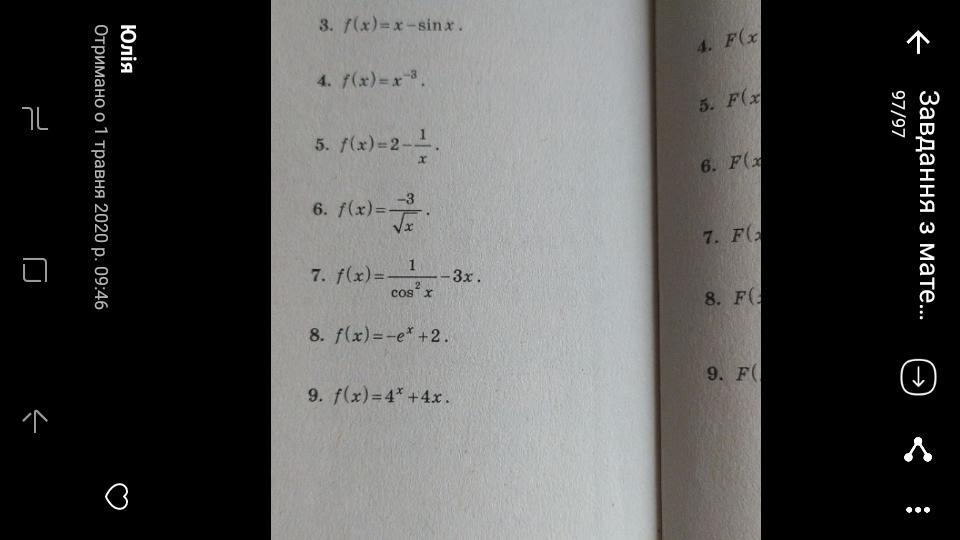 Завдання з мате...
97/97
3. f(x)=x−sin x.
4. f(x)=x⁻³.
5. f(x)=2−1/x.
6. f(x)=−3/√x.
7. f(x)=1/cos² x−3x.
8. f(x)=−eˣ+2.
9. f(x)=4ˣ+4x.
4. F(x
5. F(x
6. F(x
7. F(x
8. F(x
9. F(
Юлія
Отримано о 1 травня 2020 р. 09:46